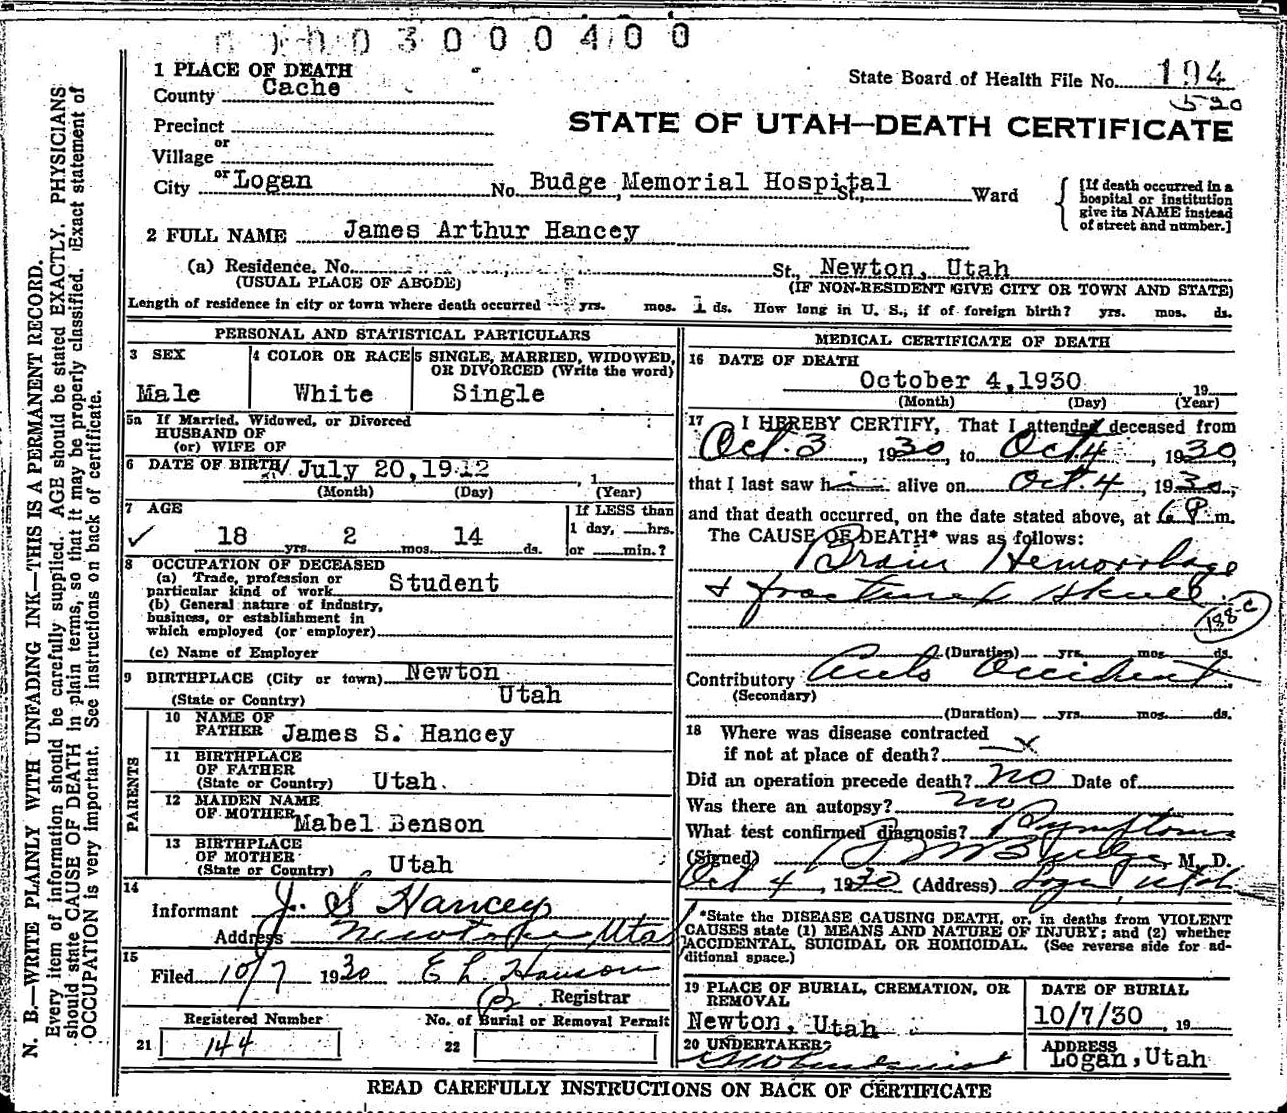 0003000400
1 PLACE OF DEATH
County Cache
State Board of Health File No. 194
520
STATE OF UTAH—DEATH CERTIFICATE
Precinct
or
Village
or
City Logan No. Budge Memorial Hospital St., Ward
[If death occurred in a
hospital or institution
give its NAME instead
of street and number.]
2 FULL NAME James Arthur Hancey
(a) Residence. No. St., Newton, Utah
(USUAL PLACE OF ABODE) (IF NON-RESIDENT GIVE CITY OR TOWN AND STATE)
Length of residence in city or town where death occurred yrs. mos. 1 ds. How long in U. S., if of foreign birth? yrs. mos. ds.
PERSONAL AND STATISTICAL PARTICULARS
3 SEX
Male
4 COLOR OR RACE
White
5 SINGLE, MARRIED, WIDOWED,
OR DIVORCED (Write the word)
Single
5a If Married, Widowed, or Divorced
HUSBAND OF
(or) WIFE OF
6 DATE OF BIRTH July 20, 1912 , 1
(Month) (Day) (Year)
7 AGE
18 yrs. 2 mos. 14 ds.
If LESS than
1 day, hrs.
or min.?
8 OCCUPATION OF DECEASED
(a) Trade, profession or
particular kind of work Student
(b) General nature of industry,
business, or establishment in
which employed (or employer)
(c) Name of Employer
9 BIRTHPLACE (City or town) Newton
(State or Country) Utah
PARENTS
10 NAME OF
FATHER James S. Hancey
11 BIRTHPLACE
OF FATHER
(State or Country) Utah
12 MAIDEN NAME
OF MOTHER Mabel Benson
13 BIRTHPLACE
OF MOTHER
(State or Country) Utah
14
Informant J. S Hancey
Address Newton Utah
15
Filed 10/7 1930 E L Hanson
Registrar
Registered Number
21 144
No. of Burial or Removal Permit
22
MEDICAL CERTIFICATE OF DEATH
16 DATE OF DEATH
October 4, 1930 19
(Month) (Day) (Year)
17 I HEREBY CERTIFY, That I attended deceased from
Oct. 3, 1930, to Oct 4, 1930,
that I last saw him alive on Oct. 4, 1930,
and that death occurred, on the date stated above, at 6 P m.
The CAUSE OF DEATH* was as follows:
Brain Hemorrhage
+ fractured Skull.
188-c
(Duration) yrs. mos. ds.
Contributory Auto Accident
(Secondary)
(Duration) yrs. mos. ds.
18 Where was disease contracted
if not at place of death? x
Did an operation precede death? no Date of
Was there an autopsy? no
What test confirmed diagnosis? Symptoms
(Signed) Budge, M. D.
Oct 4, 1930 (Address) Logan Utah
*State the DISEASE CAUSING DEATH, or, in deaths from VIOLENT
CAUSES state (1) MEANS AND NATURE OF INJURY; and (2) whether
ACCIDENTAL, SUICIDAL OR HOMICIDAL. (See reverse side for ad-
ditional space.)
19 PLACE OF BURIAL, CREMATION, OR
REMOVAL
Newton, Utah
DATE OF BURIAL
10/7/30, 19
20 UNDERTAKER
ADDRESS
Logan, Utah
READ CAREFULLY INSTRUCTIONS ON BACK OF CERTIFICATE
N. B.—WRITE PLAINLY WITH UNFADING INK—THIS IS A PERMANENT RECORD.
Every item of information should be carefully supplied. AGE should be stated EXACTLY. PHYSICIANS
should state CAUSE OF DEATH in plain terms, so that it may be properly classified. Exact statement of
OCCUPATION is very important. See instructions on back of certificate.